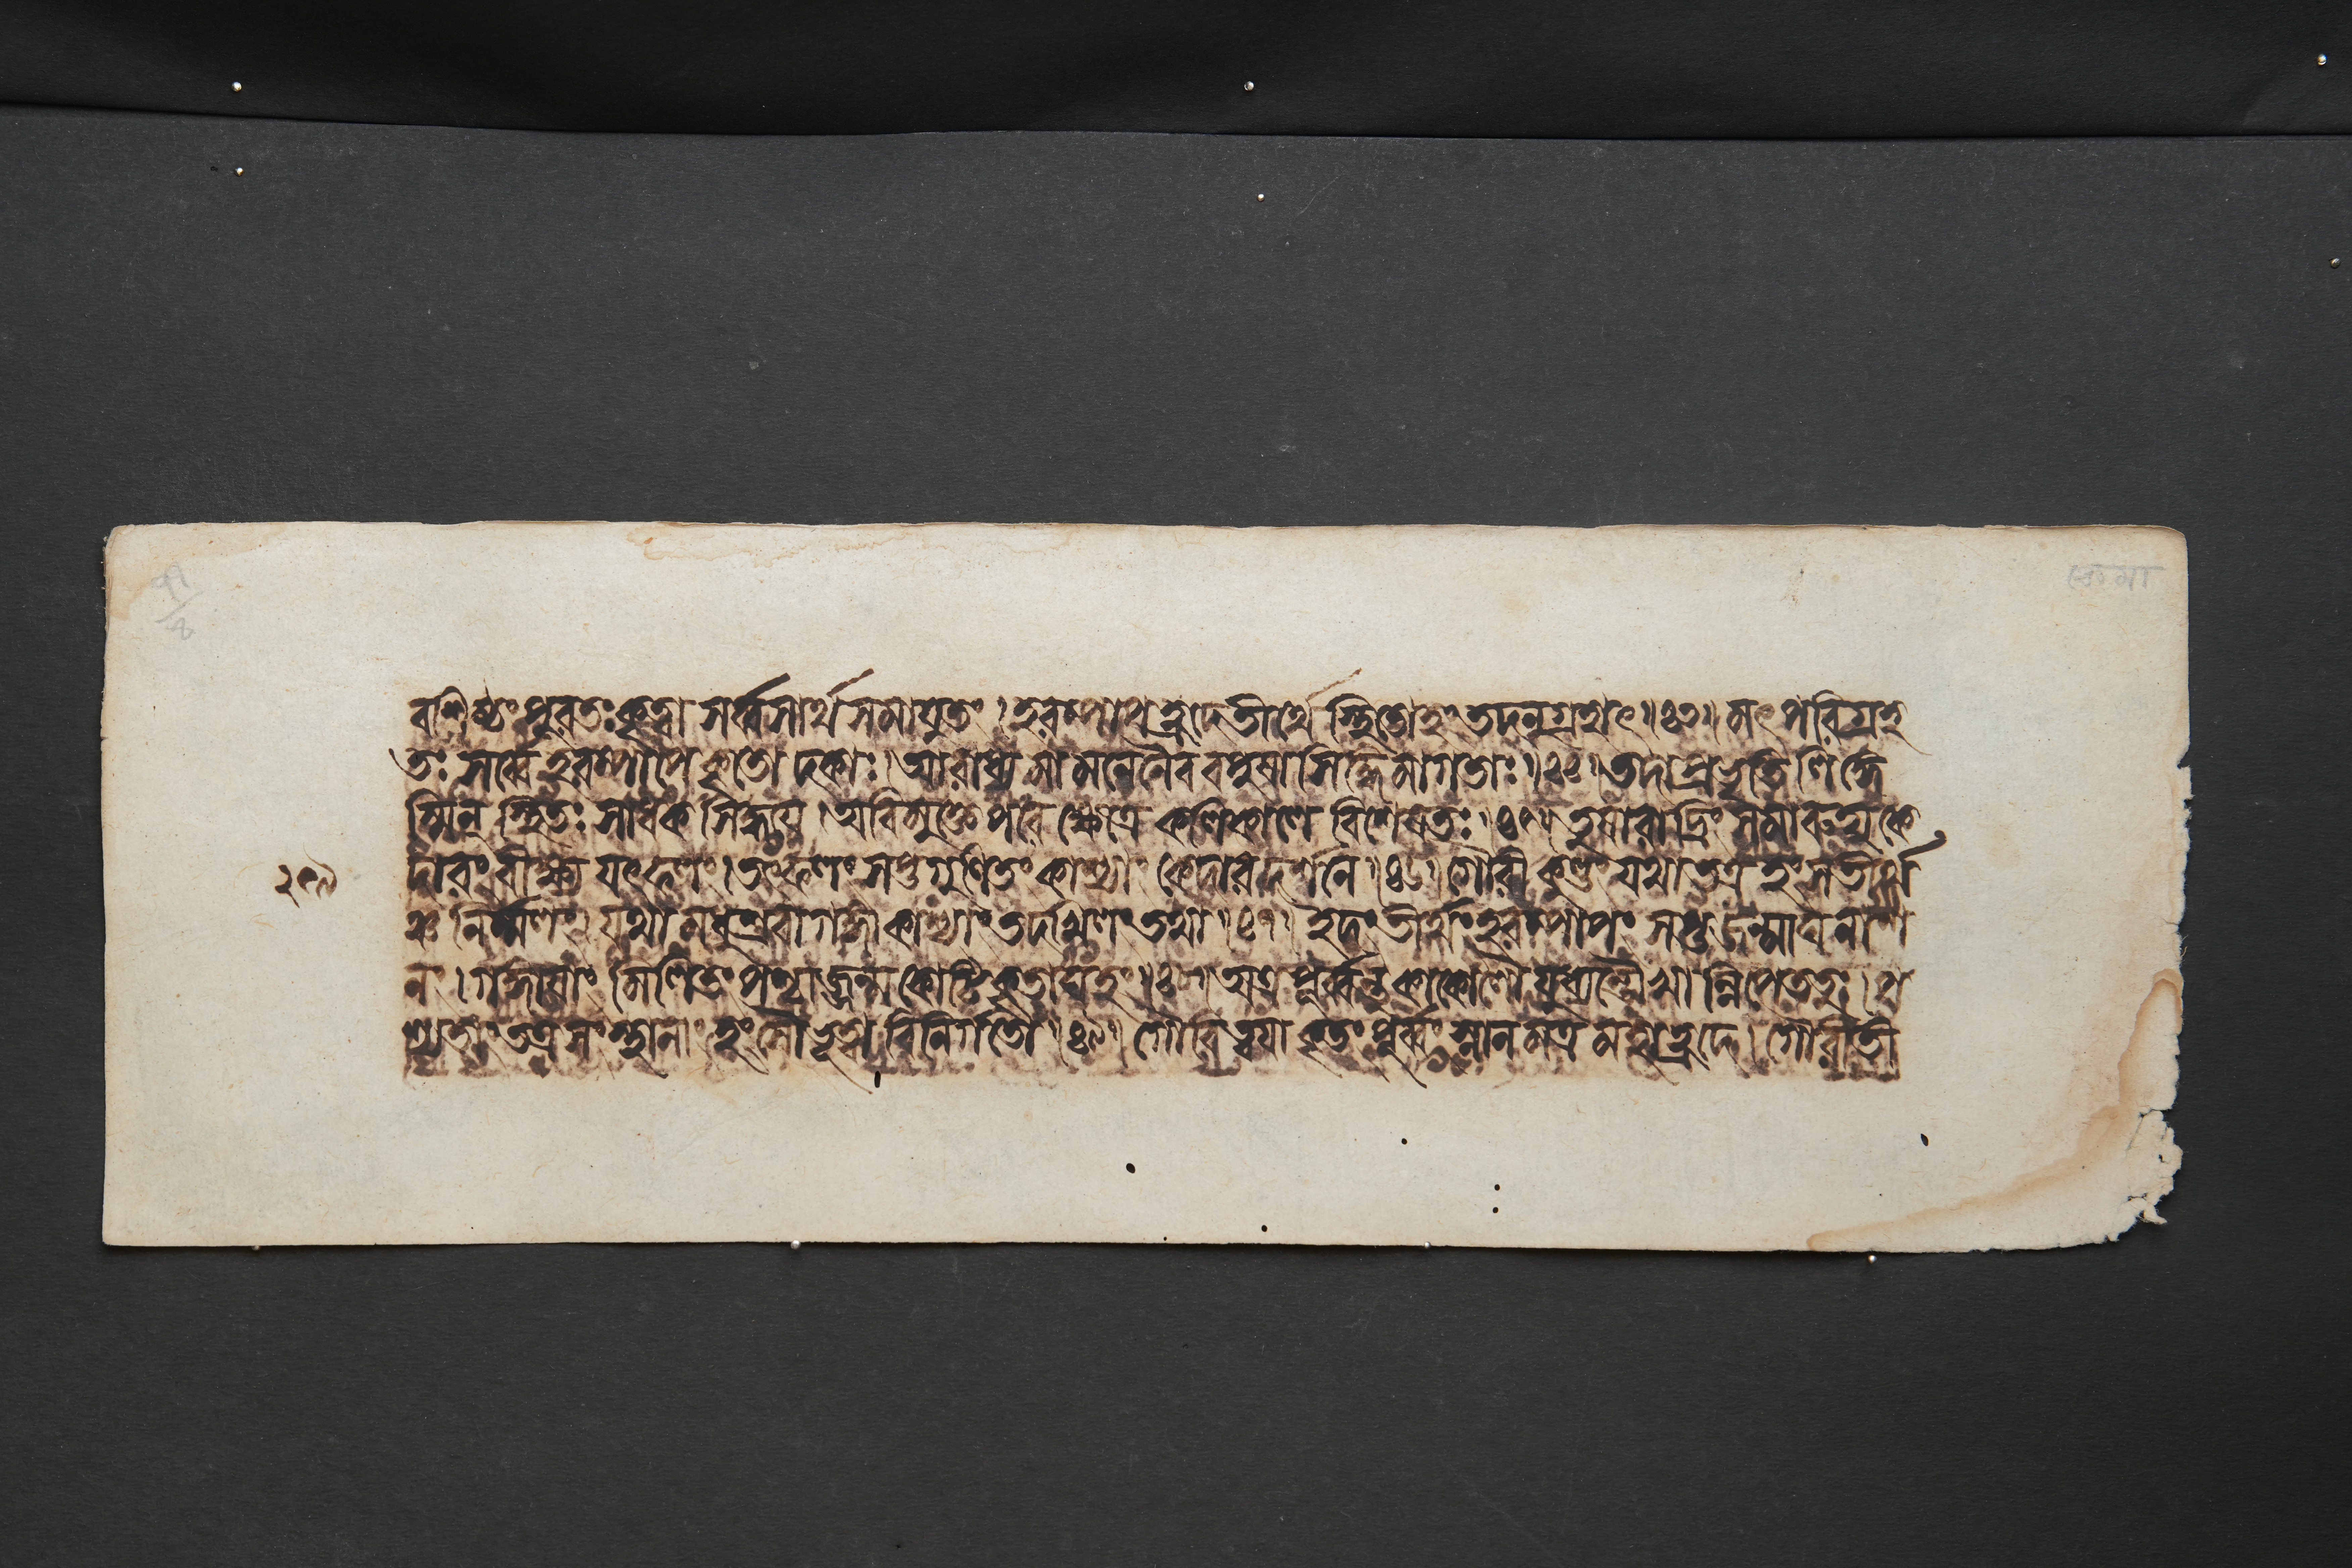 বশিষ্ঠং পুরতঃ কৃত্বা সর্ব্বসার্থসমাযুতং । হরম্পাপহ্রদে তীর্থে স্থিতোহং তদনুগ্রহাৎ ॥ ৪৩ ॥ মৎপরিগ্রহ
তঃ সর্ব্বে হরম্পাপে কৃতোদকাঃ । আরাধ্য মামনেনৈব বপুষা সিদ্ধিমাগতাঃ ॥ ৪৪ ॥ তদাপ্রভৃতি লিঙ্গে
স্মিন্ স্থিতঃ সাধকসিদ্ধয়ে । অবিমুক্তে পরে ক্ষেত্রে কলিকালে বিশেষতঃ ॥ ৪৫ ॥ তুষারাদ্রিং সমারুহ্য কে
দারং বীক্ষ্য যৎফলং । তৎফলং সপ্তগুণিতং কাশ্যাং কেদারদর্শনে ॥ ৪৬ ॥ গৌরীকুণ্ডং যথা তত্র হংসতীর্থ
ঞ্চ নির্ম্মলং । যথা মধুশ্রবা গঙ্গা কাশ্যাং তদখিলং তথা ॥ ৪৭ ॥ ইদং তীর্থং হরম্পাপং সপ্তজন্মাঘনাশ
নং । গঙ্গায়াং মিলিতং পশ্চাজ্জন্মকোটিকৃতাঘহং ॥ ৪৮ ॥ অত্র পূর্ব্বন্তু কাকোলৌ যুধ্যন্তৌ খান্নিপেততুঃ । প
শ্যতাং তত্র সংস্থানাং হংসৌ ভূত্বা বিনির্গতৌ ॥ ৪৯ ॥ গৌরি ত্বয়া কৃতং পূর্ব্বং স্নানমত্র মহাহ্রদে । গৌরীতী